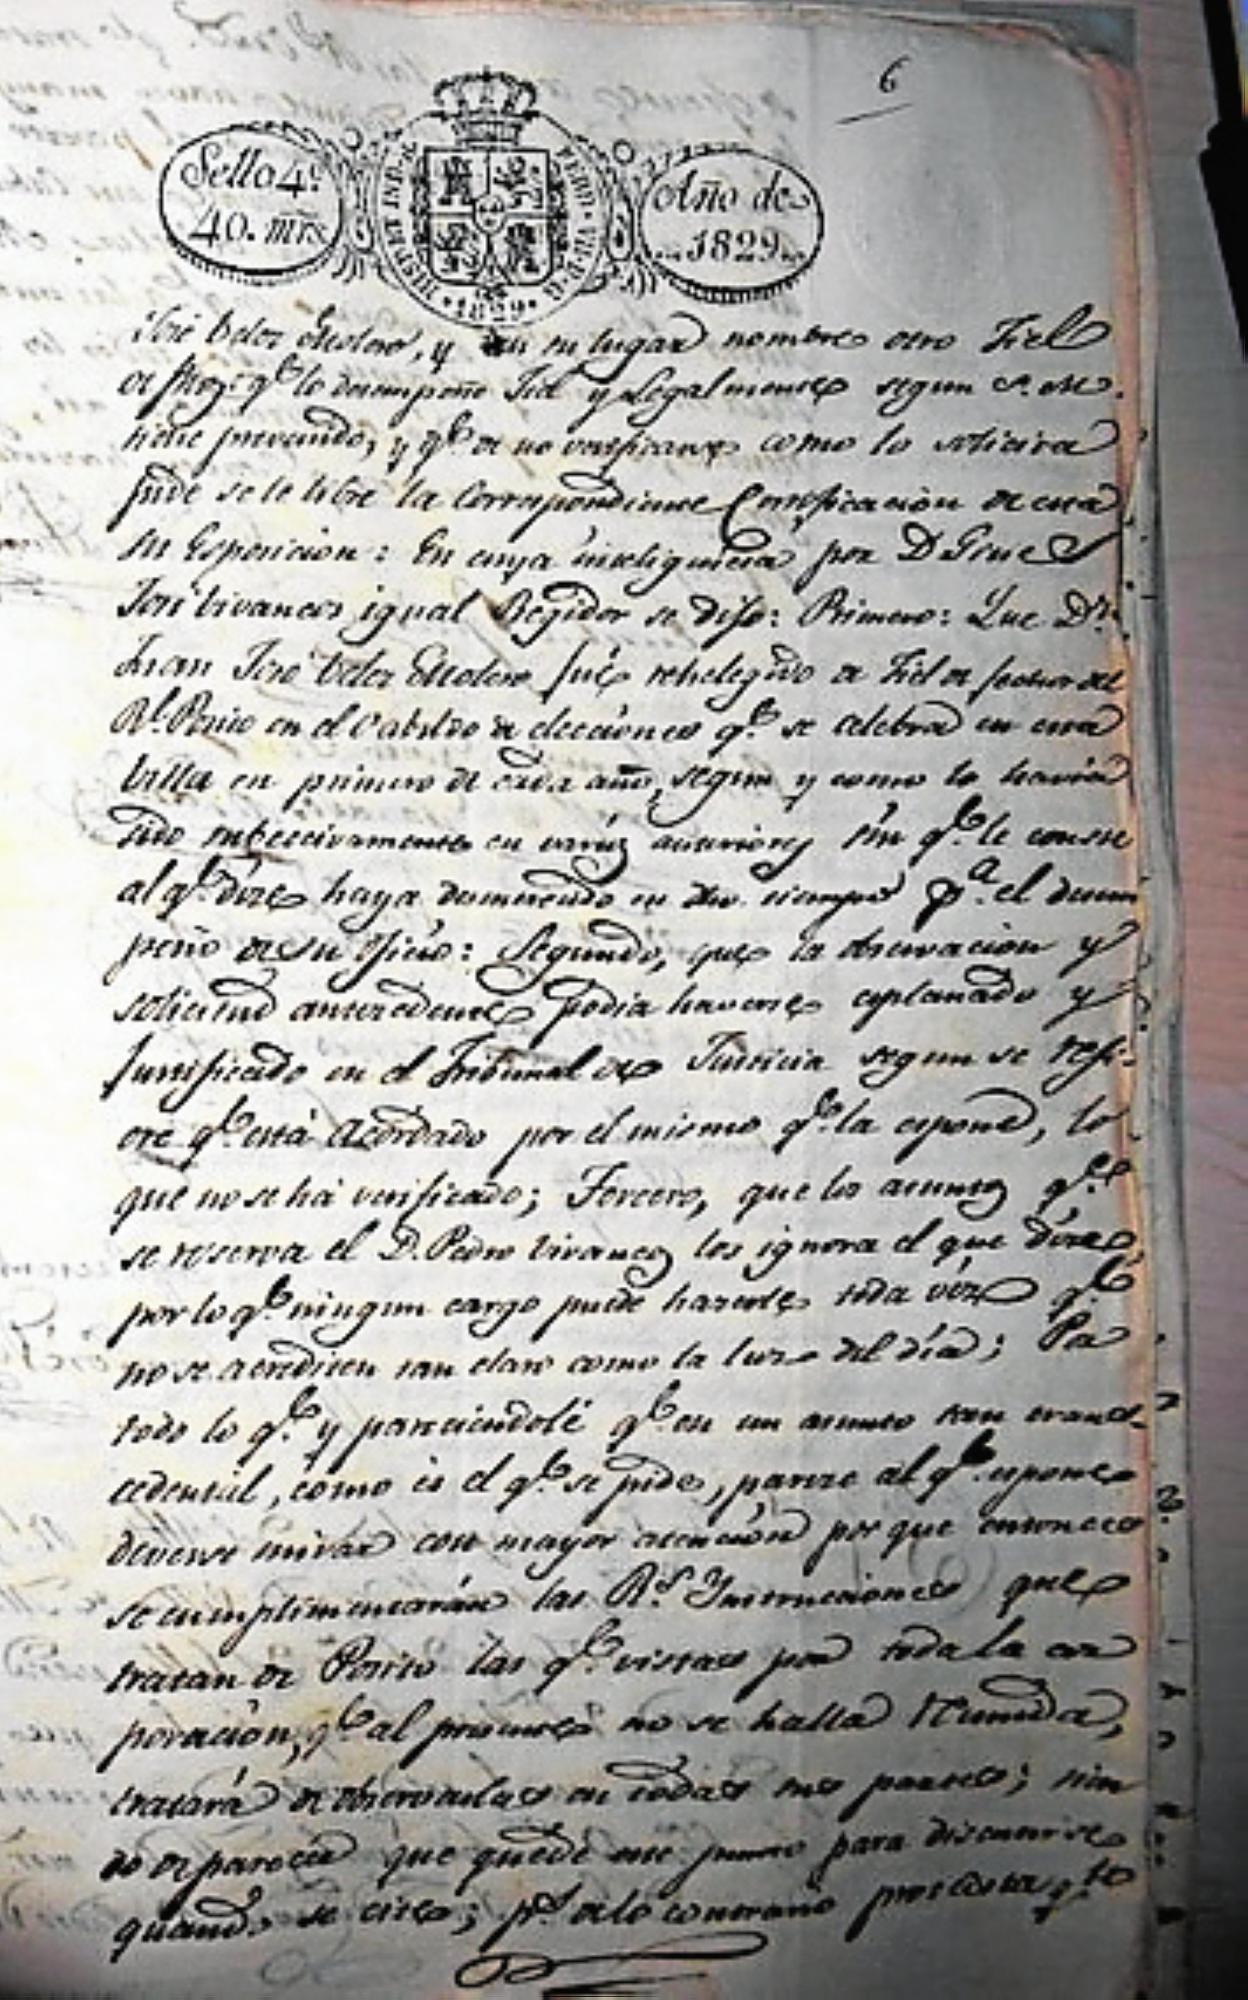 6
Sello 4.º
40. mrs
HISP. ET IND. R. FERD. VII. D. G.
1829
Año de
1829
José Velez Moltero, y en su lugar nombre otro Fiel
qᵉ lo desempeñe Fiel y Legalmente segun S. M.
tiene prevenido, y qᵉ de no verificarse como lo solicita
pide se le libre la Correspondiente Certificacion de esta
su Esposicion: En cuya inteligencia por D Gines
José Vivancos igual Regidor se dijo: Primero: Que Dⁿ
Juan José Velez Moltero fué rehelegido de Fiel de fechos del
Rˡ. Posito en el Cabildo de elecciones qᵉ. se celebra en esta
Villa en primero de cada año, segun y como lo havia
sido subcecivamente en varios anteriores sin qᵉ. le conste
al qᵉ. dize haya desmerecido en dho. tiempo pᵃ. el desem
peño de su oficio: Segundo, que la observacion y
solicitud antecedente podia haverse esplanado y
Justificado en el Tribunal de Justicia segun se refi-
ere qᵉ. está Acordado por el mismo qᵉ. la espone, lo
que no se há verificado; Tercero, que los asuntos qᵉ.
se reserva el D. Pedro Vivancos los ignora el que dize,
por lo qᵉ. ningun cargo puede hazerle toda véz qᵉ
no se acrediten tan claro como la luz del día; Pᵃ
todo lo qᵉ. y pareciendolé qᵉ. en un asunto tan trans-
cedental, como es el qᵉ. se pide, pareze al qᵉ. espone
deverse mirar con mayor atencion por que entonces
se cumplimentarán las Rˢ. Ynstrucciones que
tratan de Posito las qᵉ. vistas por toda la cor
poracion, qᵉ al presente no se halla reunida,
tratará de observarlas en todas sus partes; sien
do de parecer que quede este punto para discutirse
quando se cite; pˢ. de lo contrario protesta qᵗᵒ